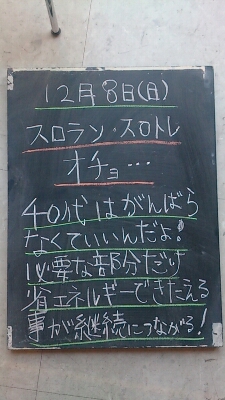 12月8日(日)
スロラン・スロトレ
オチョ…
40代はがんばら
なくていいんだよ!
必要な部分だけ
省エネルギーできたえる
事が継続につながる!